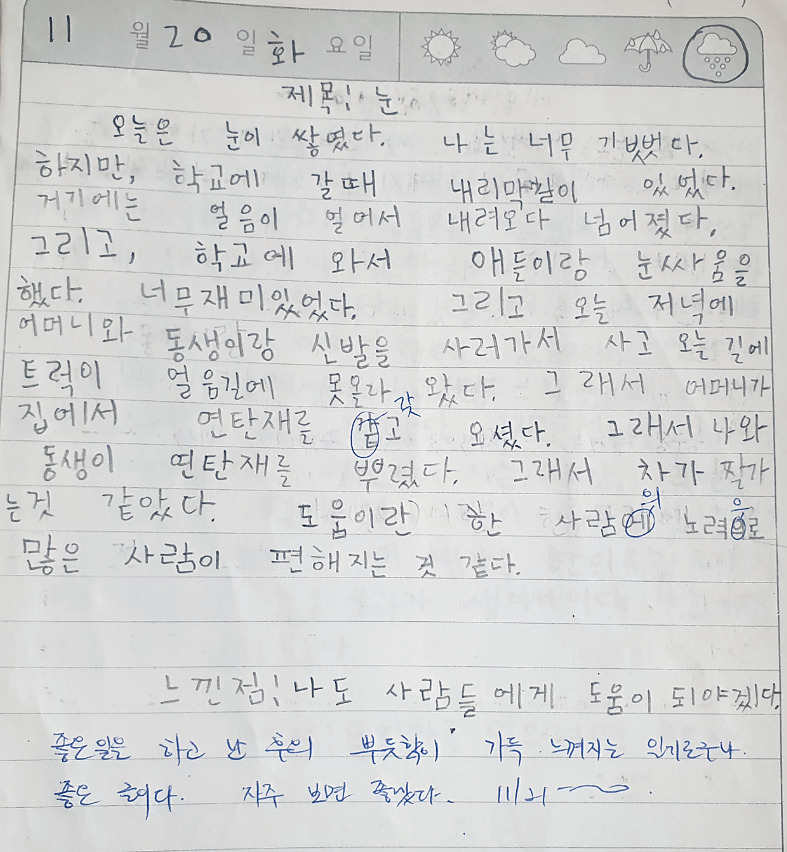 11 월 20 일 화 요일
제목: 눈
오늘은 눈이 쌓였다. 나는 너무 기뻤다.
하지만, 학교에 갈때 내리막길이 있었다.
거기에는 얼음이 얼어서 내려오다 넘어졌다,
그리고, 학교에 와서 애들이랑 눈싸움을
했다. 너무재미있었다. 그리고 오늘 저녁에
어머니와 동생이랑 신발을 사러가서 사고 오늘 길에
트럭이 얼음길에 못올라 왔다. 그래서 어머니가
갖
집에서 연탄재를 고 오셨다. 그래서 나와
동생이 연탄재를 뿌렸다. 그래서 차가 잘가
의 으
는것 같았다. 도움이란 한 사람에 노력으로
많은 사람이 편해지는 것 같다.
느낀점: 나도 사람들에게 도움이 되야겠다.
좋은일을 하고 난 후의 뿌듯함이 가득 느껴지는 일기로구나.
좋은 글이다. 자주 보면 좋겠다. 11/21